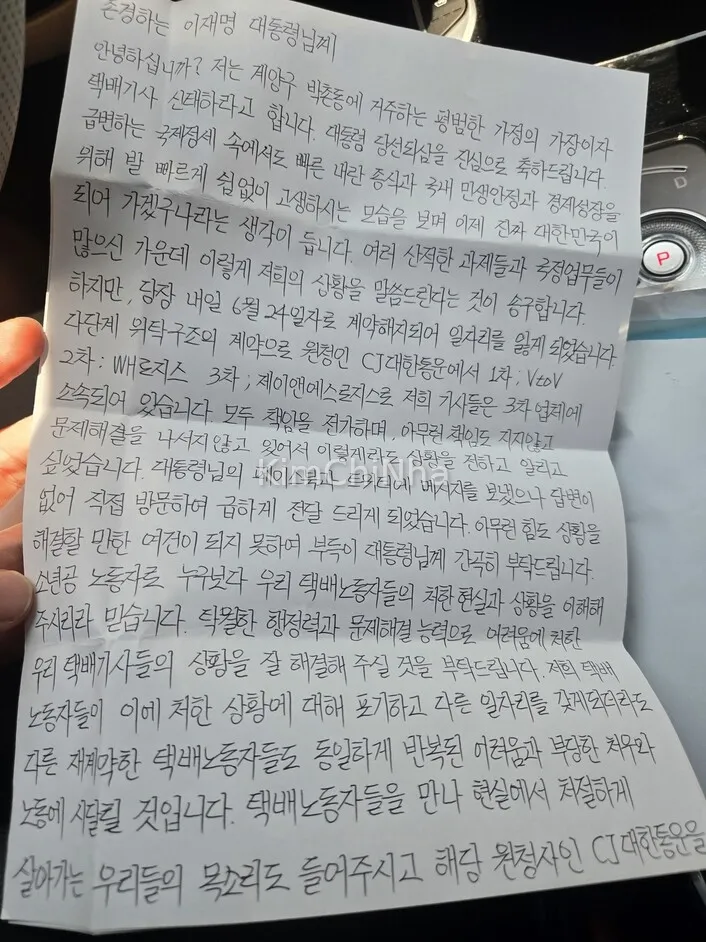 존경하는 이재명 대통령님께
안녕하십니까? 저는 계양구 박촌동에 거주하는 평범한 가정의 가장이자
택배기사 신태하라고 합니다. 대통령 당선되심을 진심으로 축하드립니다.
급변하는 국제정세 속에서도 빠른 내란 종식과 국내 민생안정과 경제성장을
위해 발 빠르게 쉼없이 고생하시는 모습을 보며 이제 진짜 대한민국이
되어 가겠구나라는 생각이 듭니다. 여러 산적한 과제들과 국정업무들이
많으신 가운데 이렇게 저희의 상황을 말씀드린다는 것이 송구합니다.
하지만, 당장 내일 6월 24일자로 계약해지되어 일자리를 잃게 되었습니다.
다단계 위탁구조의 계약으로 원청인 CJ대한통운에서 1차; VtoV
2차: WH로지스 3차; 제이앤에스로지스로 저희 기사들은 3차 업체에
소속되어 있습니다. 모두 책임을 전가하며, 아무런 책임도 지지않고
문제해결을 나서지않고 있어서 이렇게라도 상황을 전하고 알리고
싶었습니다. 대통령님의 메시지를 보냈으나 답변이
없어 직접 방문하여 급하게 전달 드리게 되었습니다. 아무런 힘도 상황을
해결할 만한 여건이 되지 못하여 부득이 대통령님께 간곡히 부탁드립니다.
소년공 노동자로 누구보다 우리 택배노동자들의 처한 현실과 상황을 이해해
주시리라 믿습니다. 탁월한 행정력과 문제해결 능력으로 어려움에 처한
우리 택배기사들의 상황을 잘 해결해 주실 것을 부탁드립니다. 저희 택배
노동자들이 이에 처한 상황에 대해 포기하고 다른 일자리를 갖게되더라도
다른 재계약한 택배노동자들도 동일하게 반복된 어려움과 부당한 처우와
노동에 시달릴 것입니다. 택배노동자들을 만나 현실에서 처절하게
살아가는 우리들의 목소리도 들어주시고 해당 원청사인 CJ대한통운을
KimChiNha
P
D